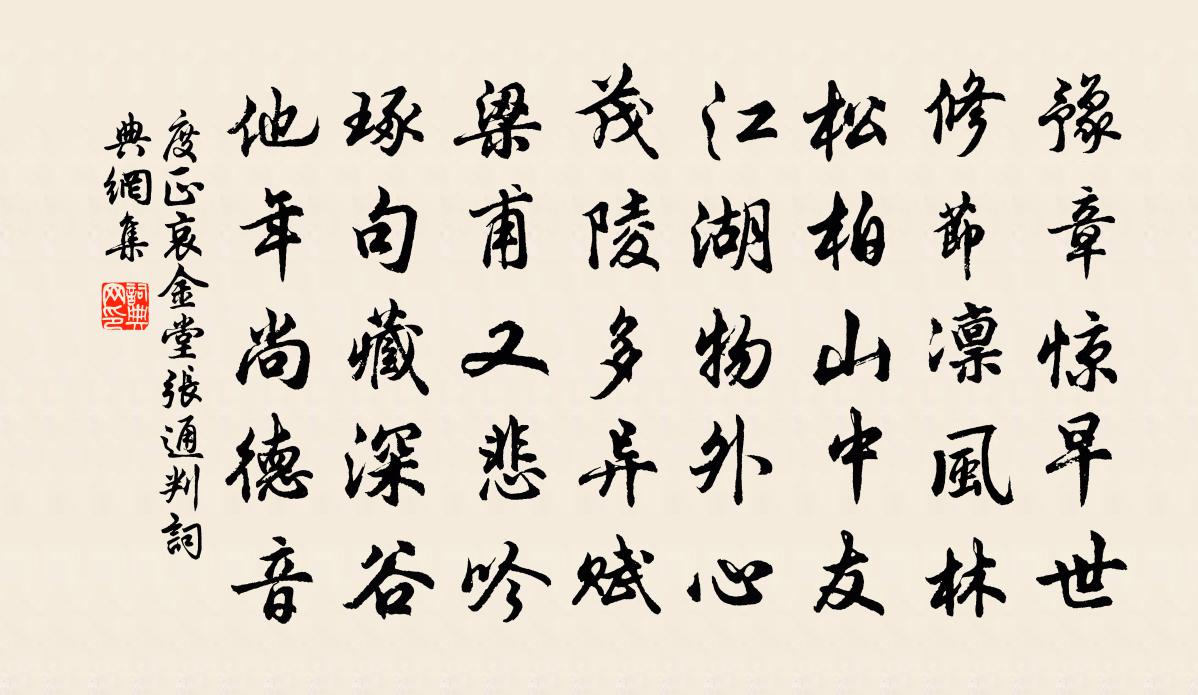 豫章惊早世
修節凛風林
松柏山中友
江湖物外心
茂陵多异赋
梁甫又悲吟
琢句藏深谷
他年尚德音
度正哀金堂張通判詞
典網集
詞典网印